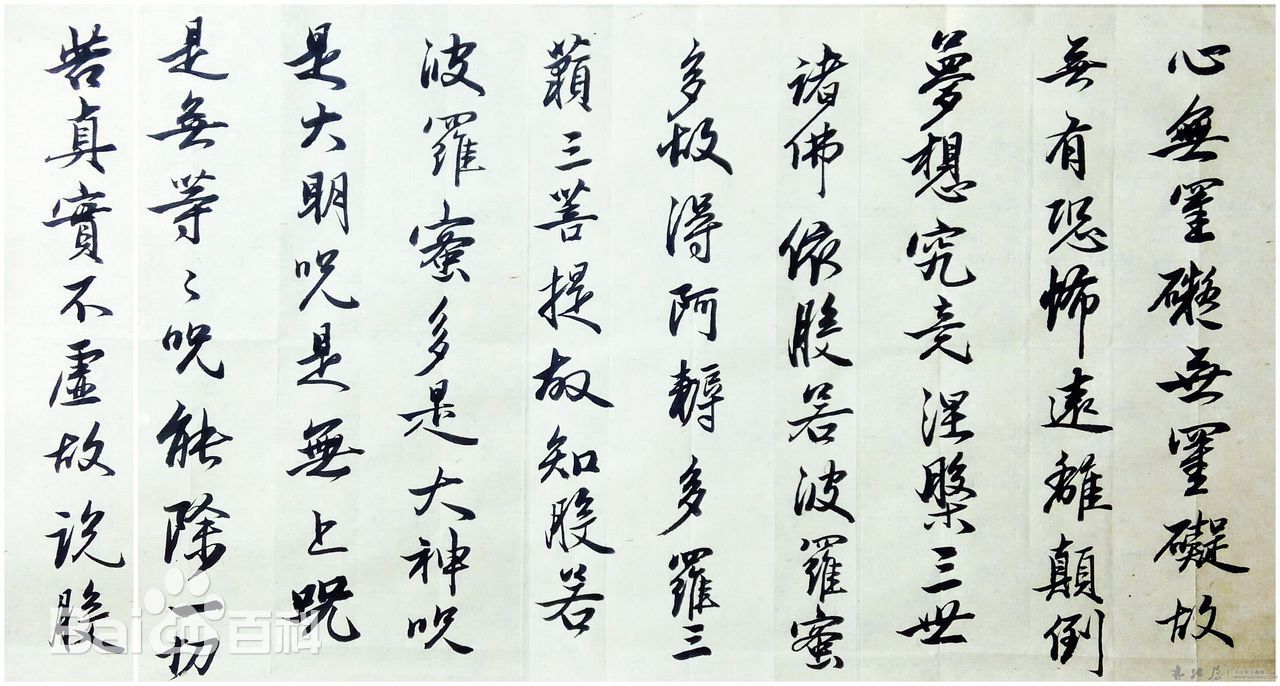 心無罣礙無罣礙故
無有恐怖遠離顛倒
夢想究竟涅槃三世
諸佛依般若波羅蜜
多故得阿耨多羅三
藐三菩提故知般若
波羅蜜多是大神咒
是大明咒是無上咒
是無等〻咒能除一切
苦真實不虛故說般
Bai百科